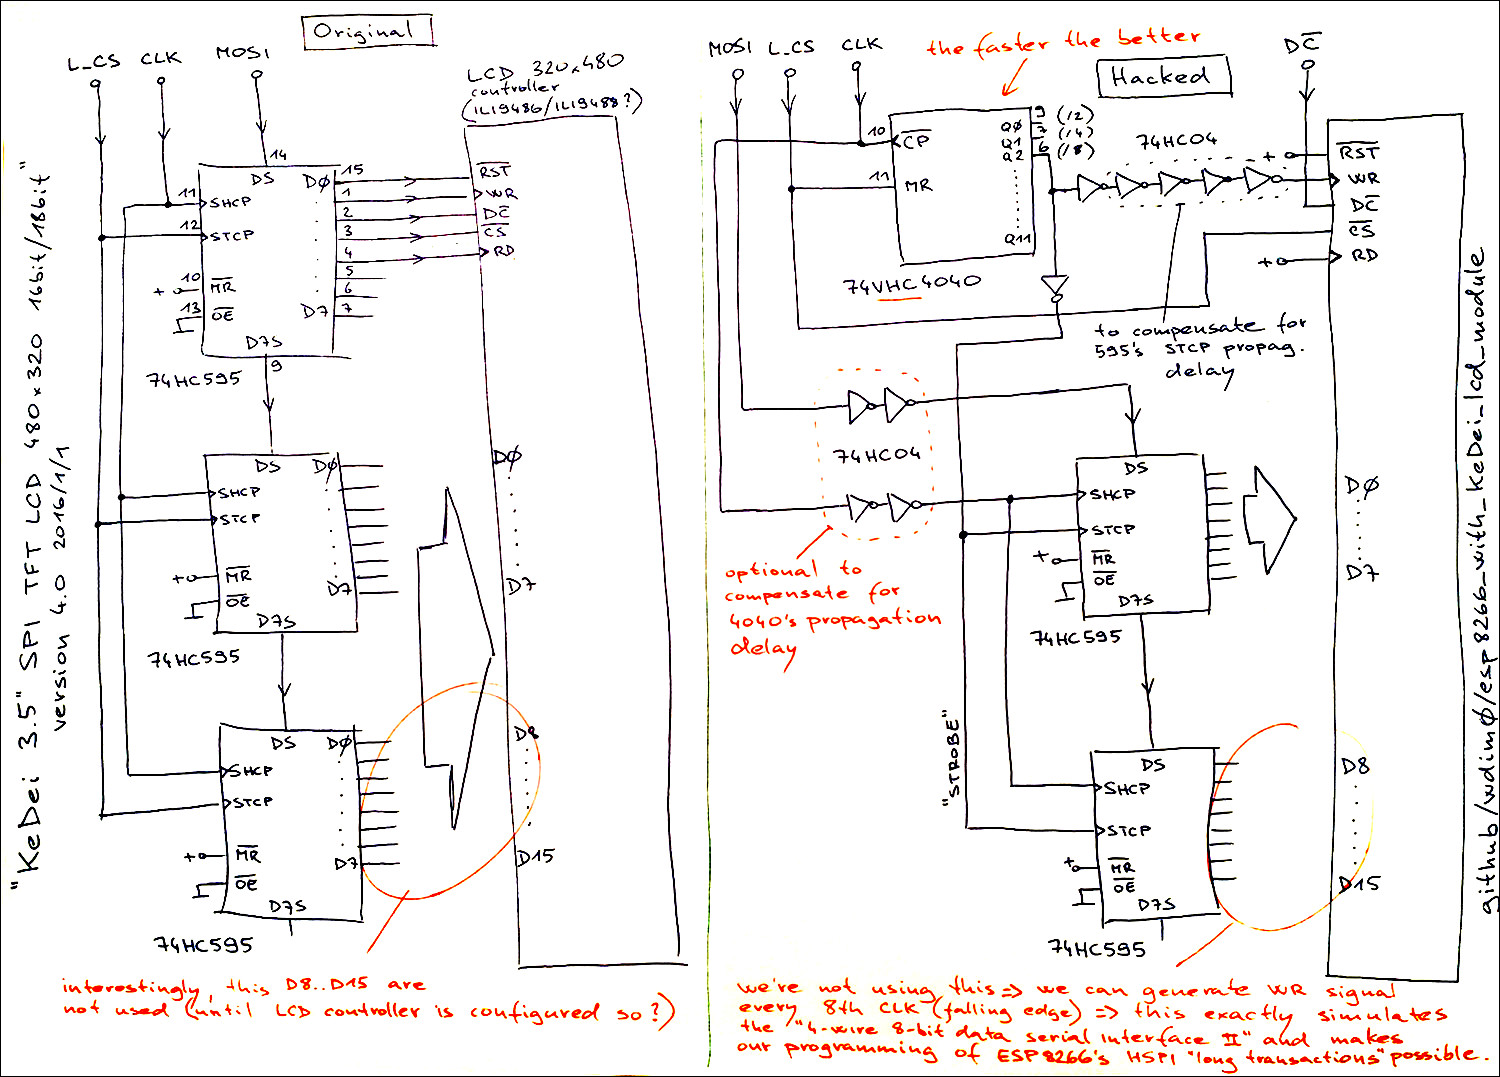 Original
L_CS
CLK
MOSI
LCD 320x480
controller
(ILI9486/ILI9488?)
14
DS
11
SHCP
12
STCP
10
+
MR
13
OE
D7S
9
74HC595
DØ
D7
15
1
2
3
4
5
6
7
RST
WR
DC
CS
RD
DS
DØ
SHCP
STCP
+
MR
OE
D7
D7S
74HC595
DØ
D7
DS
DØ
SHCP
STCP
+
MR
OE
D7
D7S
74HC595
D8
D15
"KeDei 3.5" SPI TFT LCD 480x320 16bit/18bit"
version 4.0 2016/1/1
interestingly, this D8..D15 are
not used (until LCD controller is configured so?)
MOSI
L_CS
CLK
the faster the better
Hacked
DC
10
CP
11
MR
QØ
Q1
Q2
Q11
9 (/2)
7 (/4)
6 (/8)
74VHC4040
74HC04
+
RST
WR
DC
CS
+
RD
to compensate for
595's STCP propag.
delay
74HC04
optional to
compensate for
4040's propagation
delay
DS
SHCP
STCP
+
MR
OE
D7S
74HC595
DØ
D7
"STROBE"
DS
SHCP
STCP
+
MR
OE
D7S
74HC595
D8
D15
we're not using this => we can generate WR signal
every 8th CLK (falling edge) => this exactly simulates
the "4-wire 8-bit data serial interface II" and makes
our programming of ESP8266's HSPI "long transactions" possible.
github/wdimØ/esp8266_with_KeDei_lcd_module